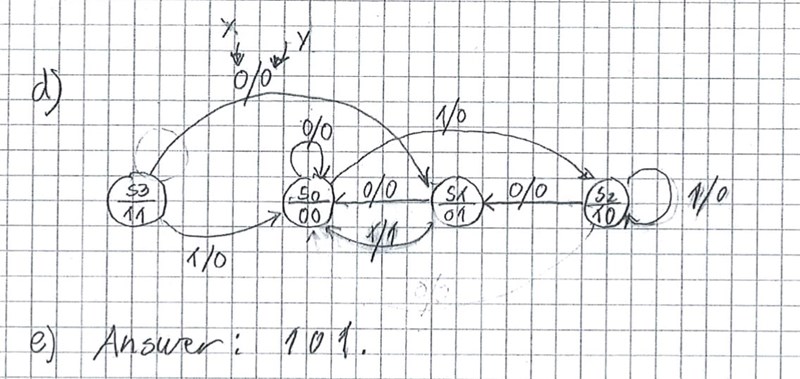 x y
d) 0/0
0/0 1/0
S3 S0 0/0 S1 0/0 S2 1/0
11 00 01 10
1/0 1/1
e) Answer: 101.